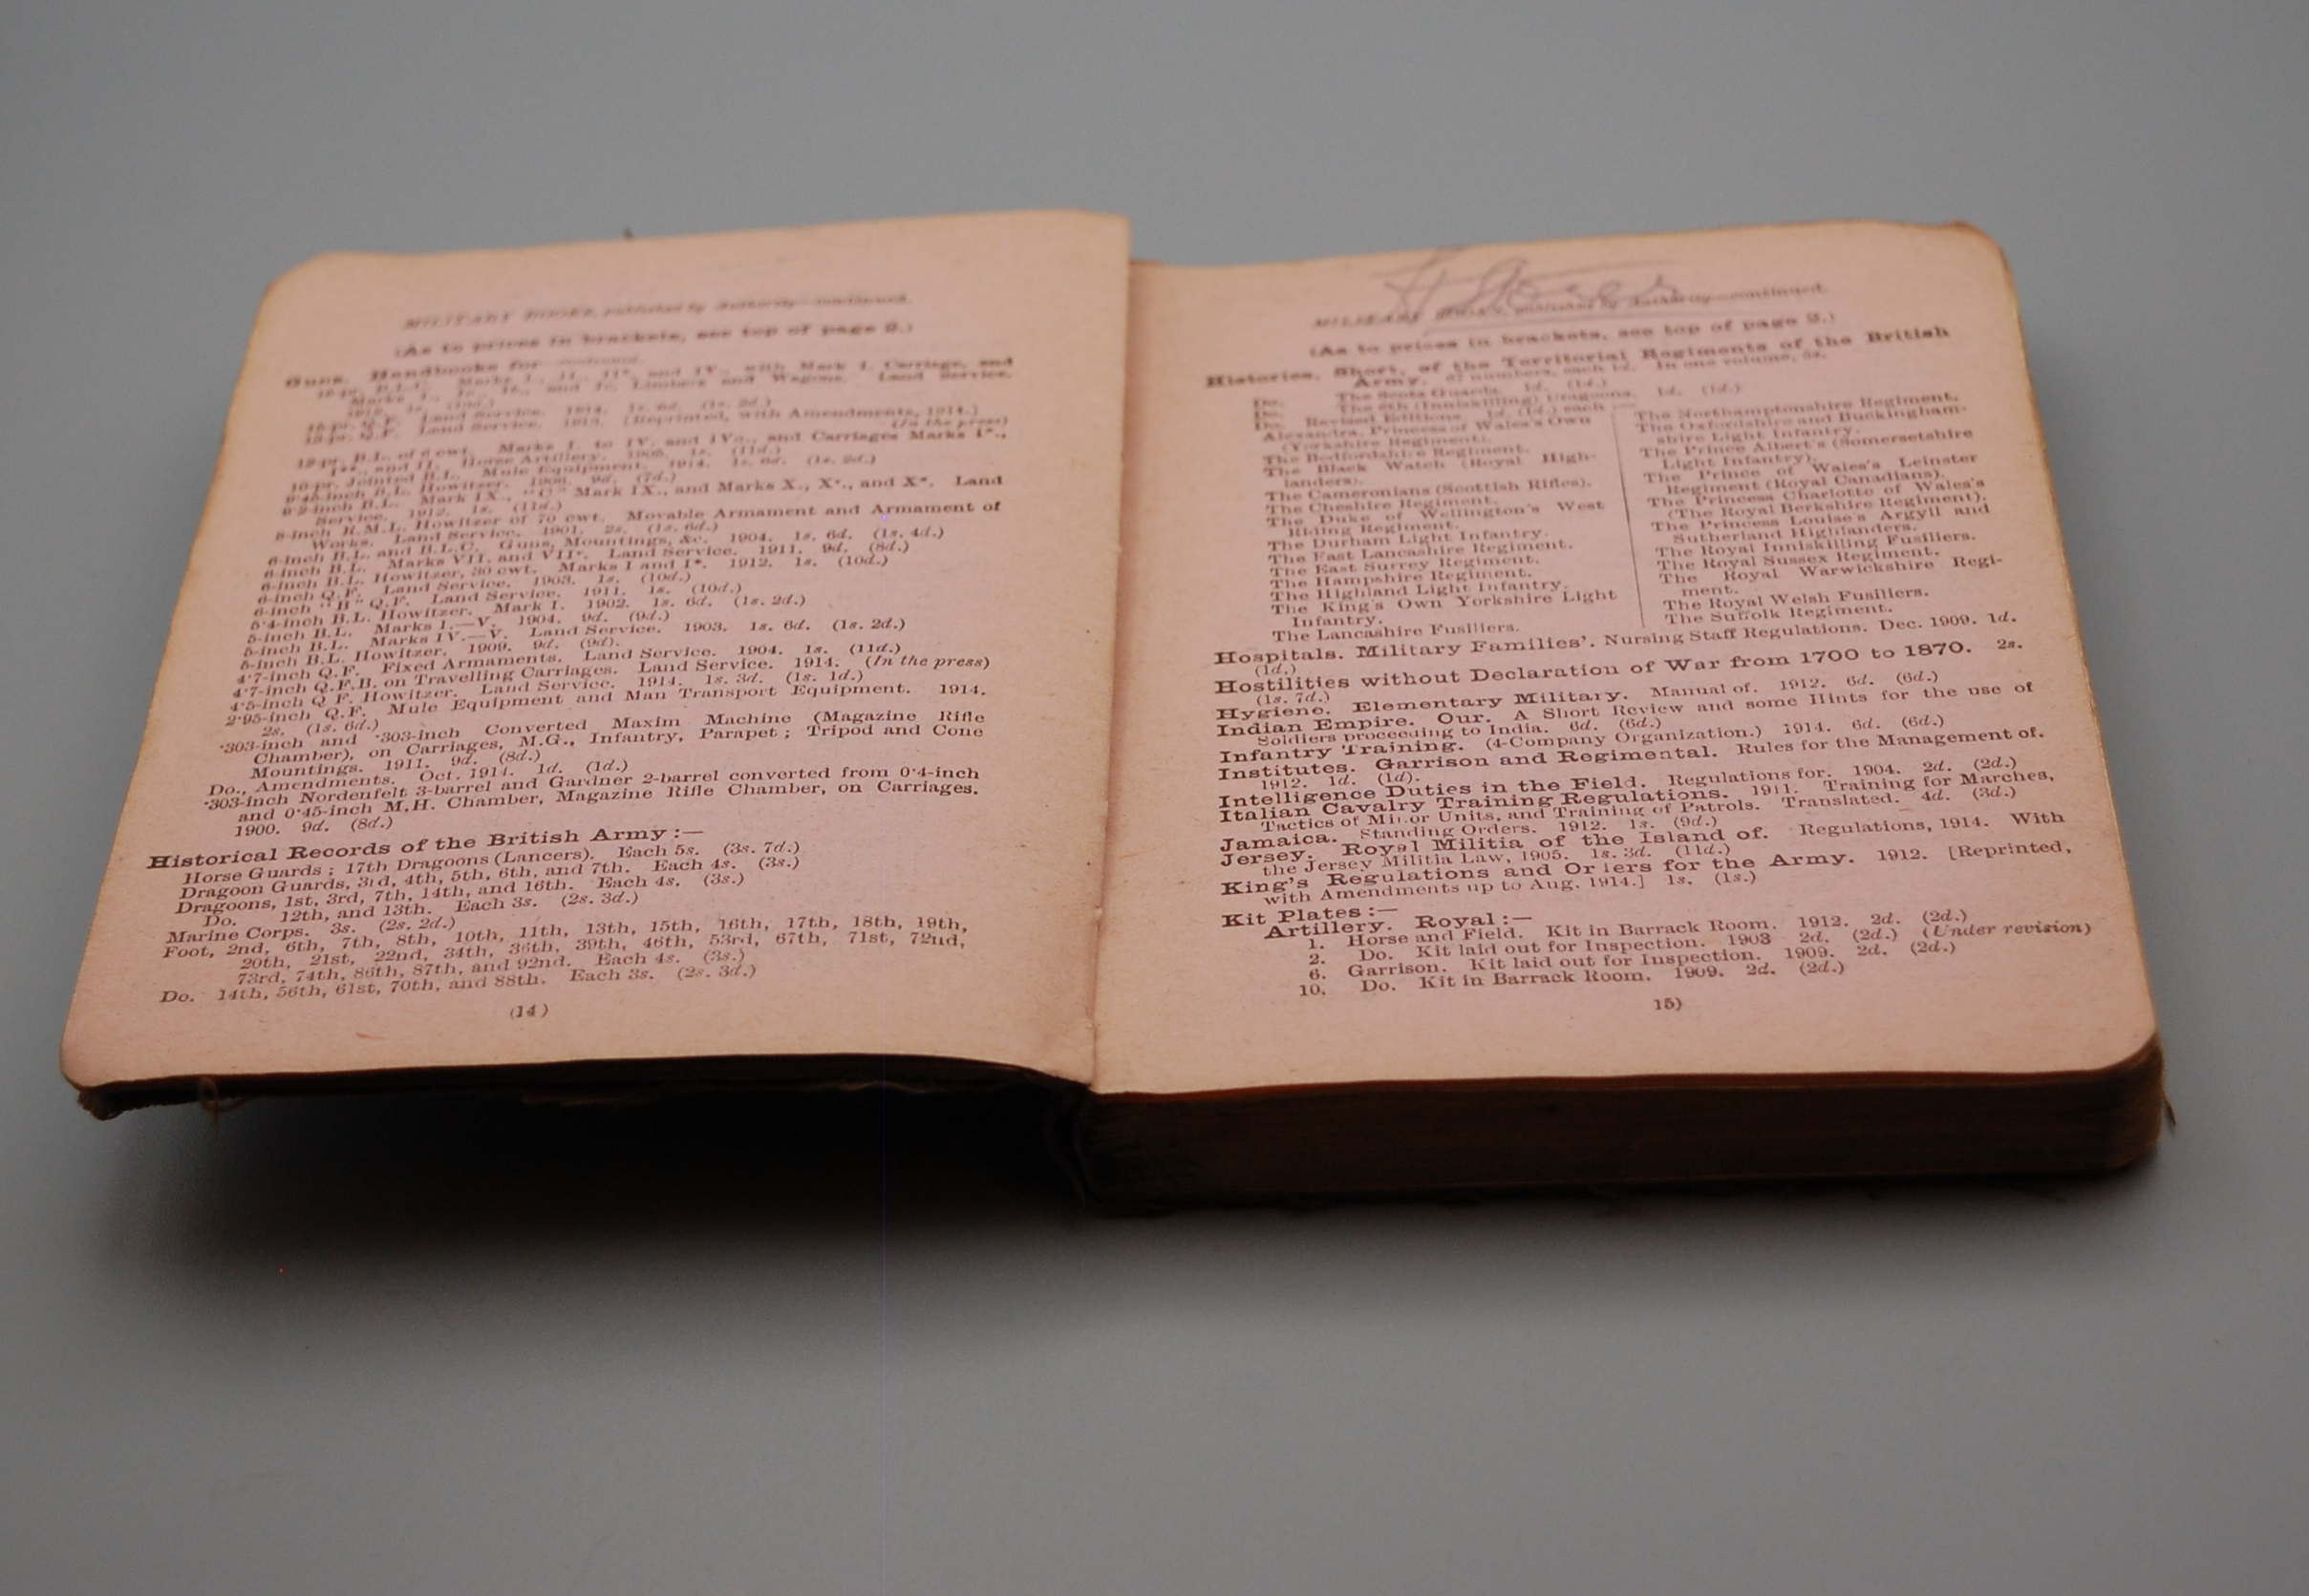 MILITARY BOOKS, published by Authority—continued.
(As to prices in brackets, see top of page 2.)
Guns. Handbooks for—continued.
Marks I., and Limbers and Wagons. Land Service.
Land Service. 1914. 1s. 6d. (1s. 2d.)
Land Service. 1913. (Reprinted, with Amendments, 1914.)
(In the press)
12-pr. B.L. of 6 cwt. Marks I. to IV. and IVa., and Carriages Marks I*.,
I**., and II. Horse Artillery. 1905. 1s. (11d.)
10-pr. Jointed B.L. Mule Equipment. 1914. 1s. 6d. (1s. 2d.)
9·45-inch B.L. Howitzer. 1906. 9d. (7d.)
9·2-inch B.L. Mark IX., "C" Mark IX., and Marks X., Xv., and X*. Land
Service. 1912. 1s. (11d.)
8-inch R.M.L. Howitzer of 70 cwt. Movable Armament and Armament of
Works. Land Service. 1901. 2s. (1s. 6d.)
6-inch B.L. and B.L.C. Guns, Mountings, &c. 1904. 1s. 6d. (1s. 4d.)
6-inch B.L. Marks VII. and VIIv. Land Service. 1911. 9d. (8d.)
6-inch B.L. Howitzer, 30 cwt. Marks I and I*. 1912. 1s. (10d.)
6-inch Q.F. Land Service. 1903. 1s. (10d.)
6-inch "B" Q.F. Land Service. 1911. 1s. (10d.)
5·4-inch B.L. Howitzer. Mark I. 1902. 1s. 6d. (1s. 2d.)
5-inch B.L. Marks I.—V. 1904. 9d. (9d.)
5-inch B.L. Marks IV.—V. Land Service. 1903. 1s. 6d. (1s. 2d.)
5-inch B.L. Howitzer. 1909. 9d. (9d).
4·7-inch Q.F. Fixed Armaments. Land Service. 1904. 1s. (11d.)
4·7-inch Q.F.B. on Travelling Carriages. Land Service. 1914. (In the press)
4·5-inch Q F. Howitzer. Land Service. 1914. 1s. 3d. (1s. 1d.)
2·95-inch Q.F. Mule Equipment and Man Transport Equipment. 1914.
2s. (1s. 6d.)
·303-inch and ·303-inch Converted Maxim Machine (Magazine Rifle
Chamber), on Carriages, M.G., Infantry, Parapet; Tripod and Cone
Mountings. 1911. 9d. (8d.)
Do., Amendments. Oct. 1914. 1d. (1d.)
·303-inch Nordenfelt 3-barrel and Gardner 2-barrel converted from 0·4-inch
and 0·45-inch M.H. Chamber, Magazine Rifle Chamber, on Carriages.
1900. 9d. (8d.)
Historical Records of the British Army:—
Horse Guards; 17th Dragoons (Lancers). Each 5s. (3s. 7d.)
Dragoon Guards, 3rd, 4th, 5th, 6th, and 7th. Each 4s. (3s.)
Dragoons, 1st, 3rd, 7th, 14th, and 16th. Each 4s. (3s.)
Do. 12th, and 13th. Each 3s. (2s. 3d.)
Marine Corps. 3s. (2s. 2d.)
Foot, 2nd, 6th, 7th, 8th, 10th, 11th, 13th, 15th, 16th, 17th, 18th, 19th,
20th, 21st, 22nd, 34th, 36th, 39th, 46th, 53rd, 67th, 71st, 72nd,
73rd, 74th, 86th, 87th, and 92nd. Each 4s. (3s.)
Do. 14th, 56th, 61st, 70th, and 88th. Each 3s. (2s. 3d.)
(14)
MILITARY BOOKS, published by Authority—continued.
(As to prices in brackets, see top of page 2.)
Histories, Short, of the Territorial Regiments of the British
Army. 67 numbers, each 1d. In one volume, 5s.
Do. The Scots Guards. 1d. (1d.)
Do. The 6th (Inniskilling) Dragoons. 1d. (1d.)
Do. Revised Editions. 1d. (1d.) each:—
Alexandra, Princess of Wales's Own
(Yorkshire Regiment).
The Bedfordshire Regiment.
The Black Watch (Royal High-
landers).
The Cameronians (Scottish Rifles).
The Cheshire Regiment.
The Duke of Wellington's West
Riding Regiment.
The Durham Light Infantry.
The East Lancashire Regiment.
The East Surrey Regiment.
The Hampshire Regiment.
The Highland Light Infantry.
The King's Own Yorkshire Light
Infantry.
The Lancashire Fusiliers.
The Northamptonshire Regiment.
The Oxfordshire and Buckingham-
shire Light Infantry.
The Prince Albert's (Somersetshire
Light Infantry).
The Prince of Wales's Leinster
Regiment (Royal Canadians).
The Princess Charlotte of Wales's
(The Royal Berkshire Regiment).
The Princess Louise's Argyll and
Sutherland Highlanders.
The Royal Inniskilling Fusiliers.
The Royal Sussex Regiment.
The Royal Warwickshire Regi-
ment.
The Royal Welsh Fusiliers.
The Suffolk Regiment.
Hospitals. Military Families'. Nursing Staff Regulations. Dec. 1909. 1d.
(1d.)
Hostilities without Declaration of War from 1700 to 1870. 2s.
(1s. 7d.)
Hygiene. Elementary Military. Manual of. 1912. 6d. (6d.)
Indian Empire. Our. A Short Review and some Hints for the use of
Soldiers proceeding to India. 6d. (6d.)
Infantry Training. (4-Company Organization.) 1914. 6d. (6d.)
Institutes. Garrison and Regimental. Rules for the Management of.
1912. 1d. (1d).
Intelligence Duties in the Field. Regulations for. 1904. 2d. (2d.)
Italian Cavalry Training Regulations. 1911. Training for Marches,
Tactics of Minor Units, and Training of Patrols. Translated. 4d. (3d.)
Jamaica. Standing Orders. 1912. 1s. (9d.)
Jersey. Royal Militia of the Island of. Regulations, 1914. With
the Jersey Militia Law, 1905. 1s. 3d. (11d.)
King's Regulations and Orders for the Army. 1912. [Reprinted,
with Amendments up to Aug. 1914.] 1s. (1s.)
Kit Plates:—
Artillery. Royal:—
1. Horse and Field. Kit in Barrack Room. 1912. 2d. (2d.)
2. Do. Kit laid out for Inspection. 1903 2d. (2d.) (Under revision)
6. Garrison. Kit laid out for Inspection. 1909. 2d. (2d.)
10. Do. Kit in Barrack Room. 1909. 2d. (2d.)
15)